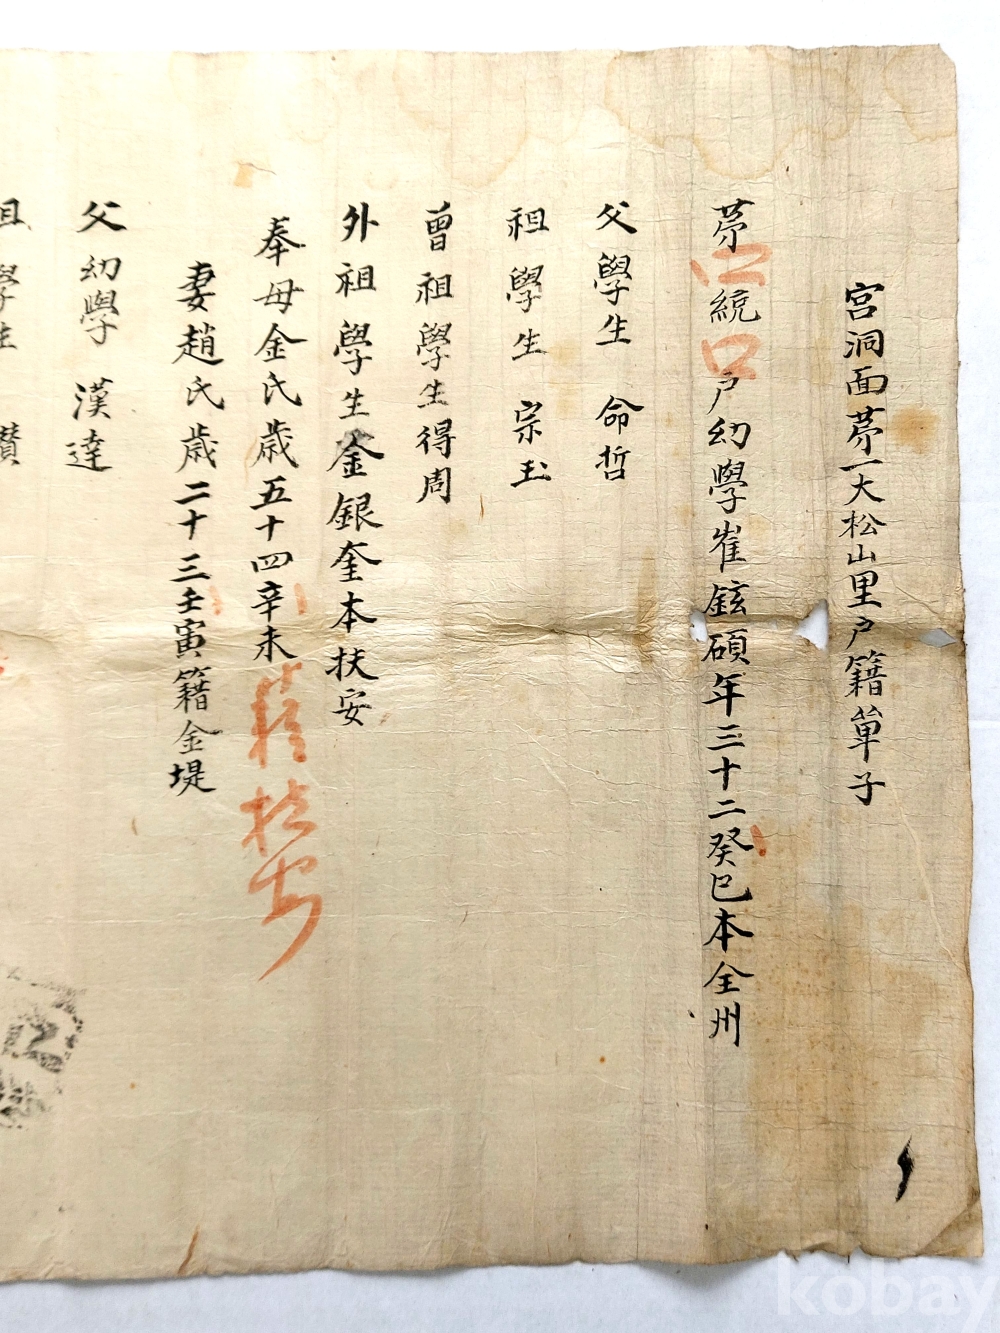 宮洞面苐一大松山里戶籍單子
苐 口 統 口 戶幼學崔鉉碩年三十二癸巳本全州
父學生 命哲
祖學生 宗玉
曾祖學生得周
外祖學生金銀奎本扶安
奉母金氏歲五十四辛未籍扶安
妻趙氏歲二十三壬寅籍金堤
父幼學 漢達
祖學生
kobay